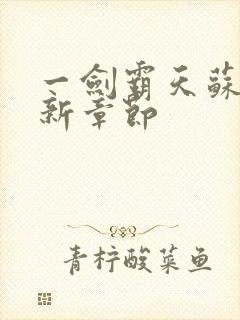 一劍霸天蘇
新章節
青柠酸菜鱼